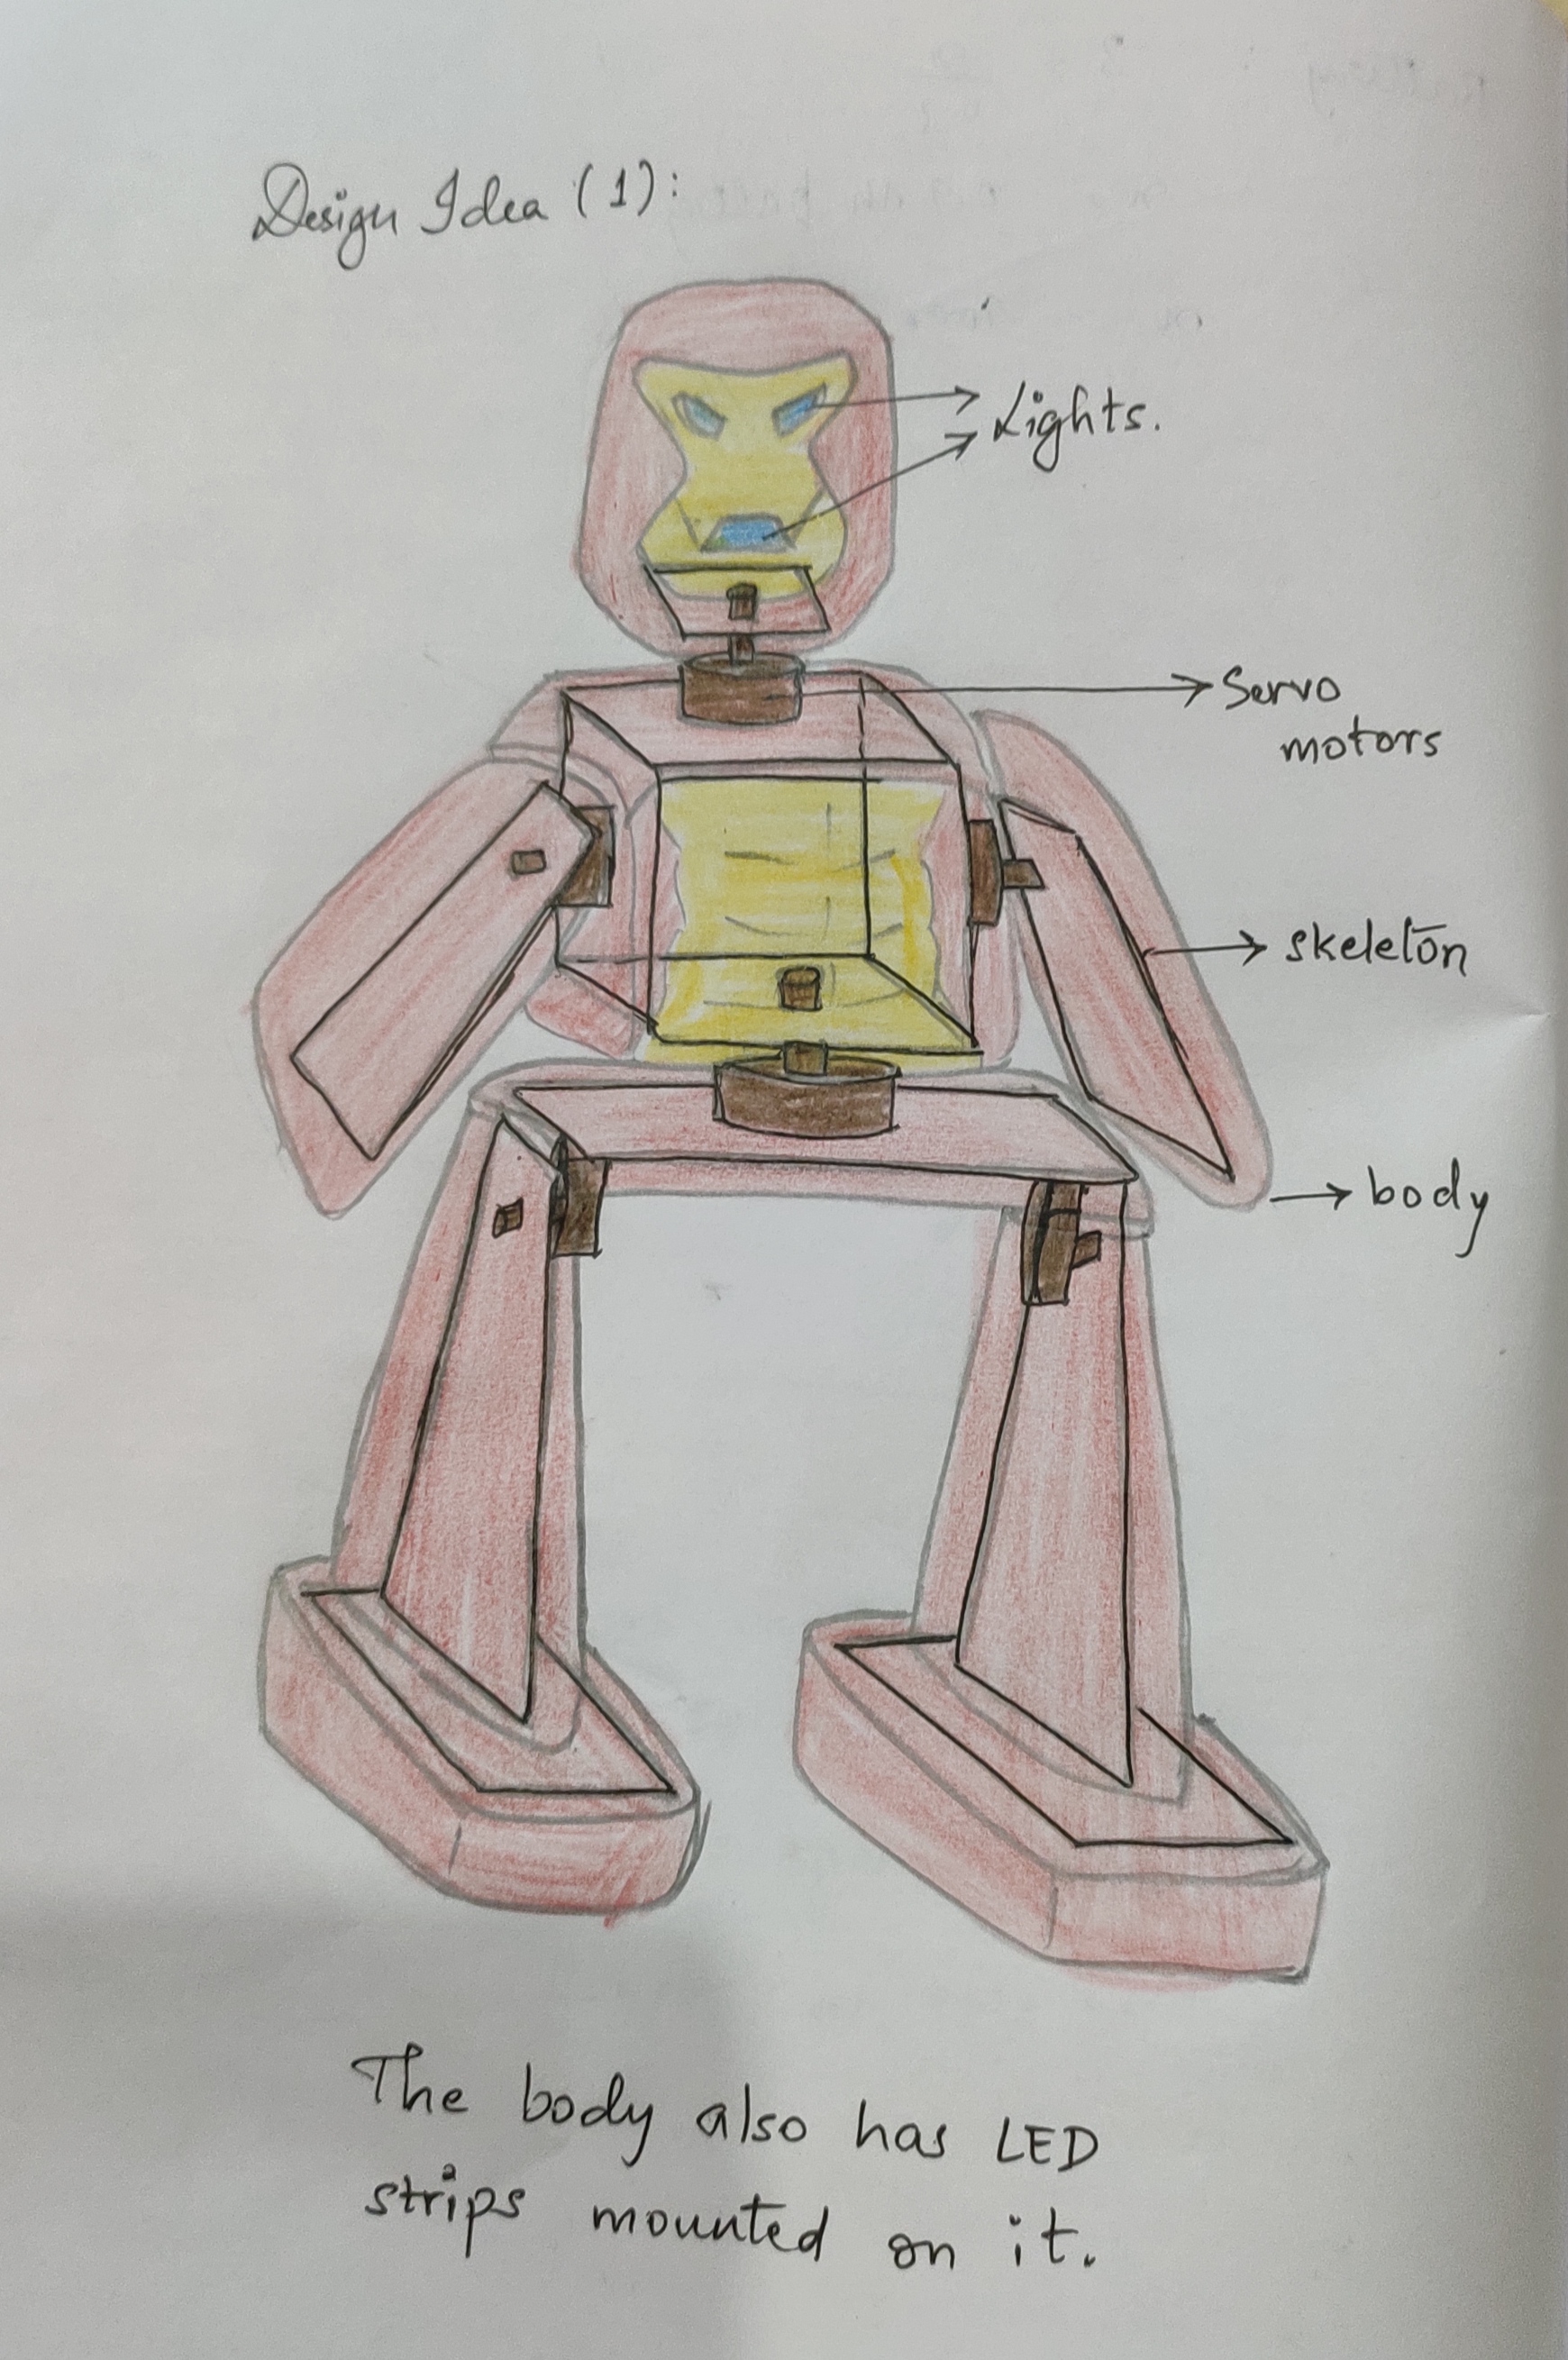 Design Idea (1):
Lights.
Servo
motors
skeleton
body
The body also has LED
strips mounted on it.